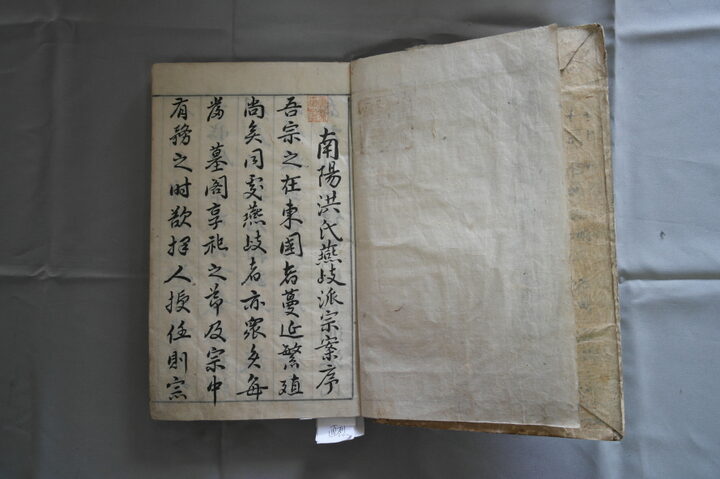 南陽洪氏燕岐派宗案序
吾宗之在東國者蔓延繁殖
尚矣同處燕岐者亦衆矣每
為墓閣享祀之節及宗中
有務之时欲擇人授任則宗